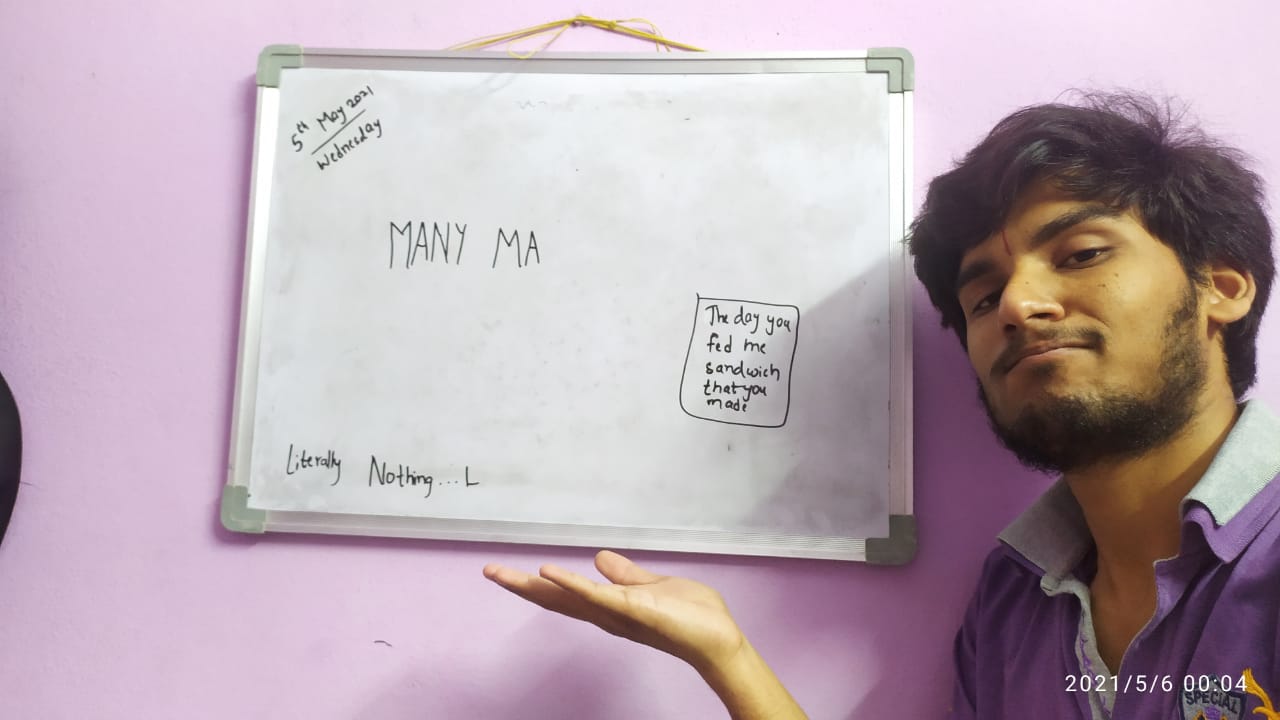 5th May 2021
Wednesday
MANY MA
The day you
fed me
sandwich
that you
made
Literally Nothing...L
2021/5/6 00:04
SPECIAL